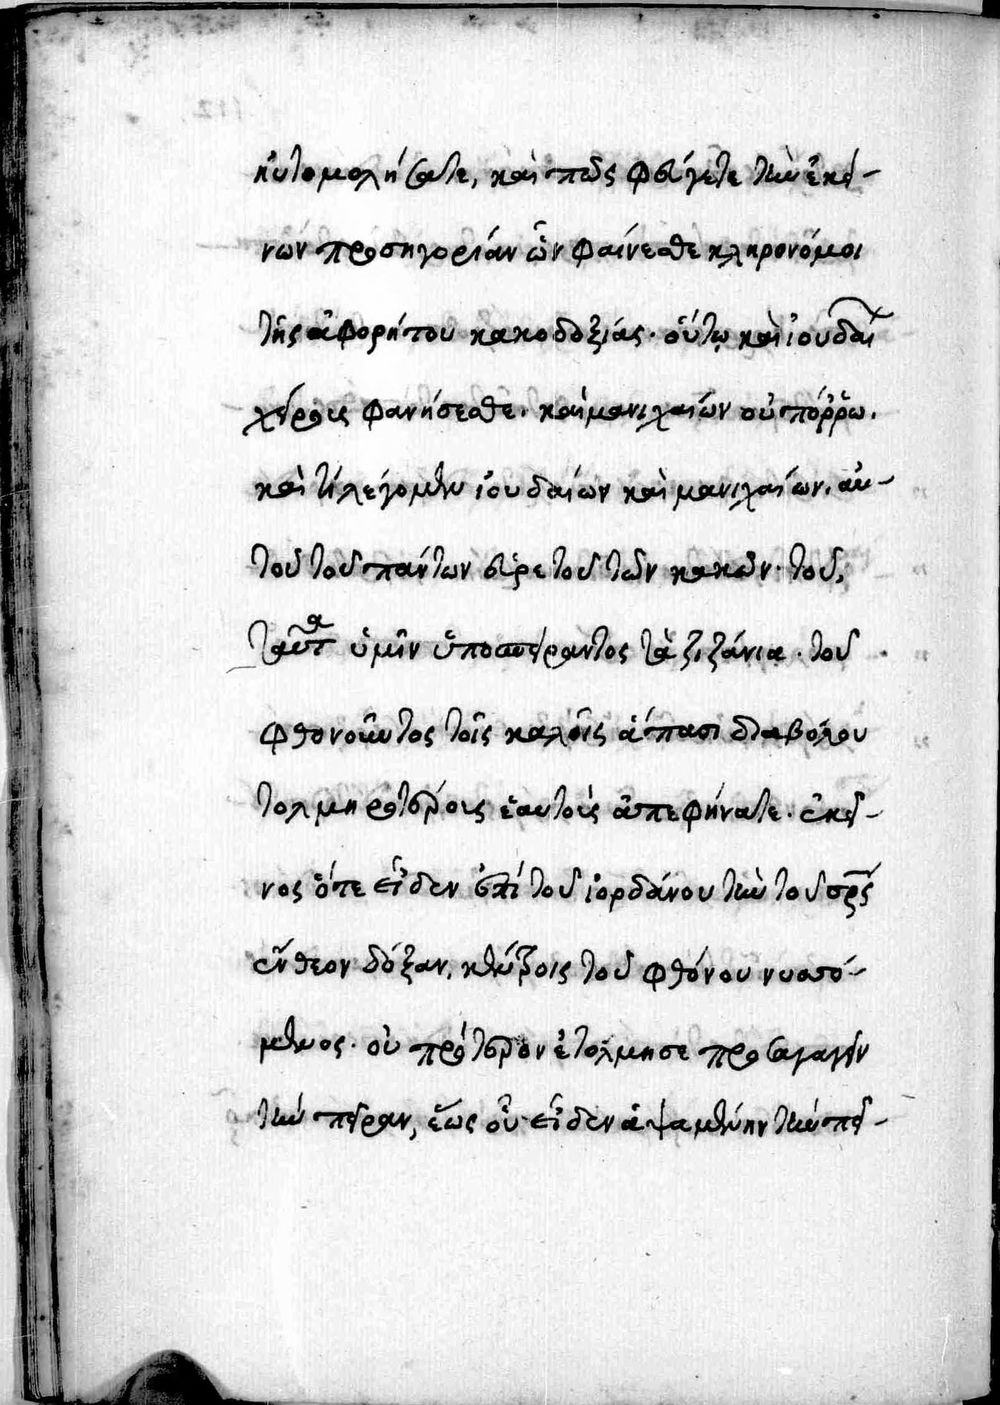 ηὐτομολήσατε, καὶ πῶς φεύγετε τὴν ἐκεί-
νων προσηγορίαν ὧν φαίνεσθε κληρονόμοι
τῆς ἀφορήτου κακοδοξίας· οὕτω καὶ ἰουδαί
χείροις φανήσεσθε· καὶ μανιχαίων οὐ πόρρω.
καὶ τί λέγομεν ἰουδαίων καὶ μανιχαίων, αὐ-
τοῦ τοῦ πάντων εὑρετοῦ τῶν κακῶν· τοῦ,
ταῦτα ὑμῖν ὑποσπείραντος τὰ ζιζάνια· τοῦ
φθονοῦντος τοῖς καλοῖς ἅπασι διαβόλου
τολμηροτέρους ἑαυτοὺς ἀπεφήνατε· ἐκεῖ-
νος ὅτε εἶδεν ἐπὶ τοῦ ἰορδάνου τὴν τοῦ σρς
ἔνθεον δόξαν, κέντροις τοῦ φθόνου νυσσό-
μενος· οὐ πρότερον ἐτόλμησε προσαγαγεῖν
τὴν πεῖραν, ἕως οὗ εἶδεν ἁψαμένην τὴν πεῖ-